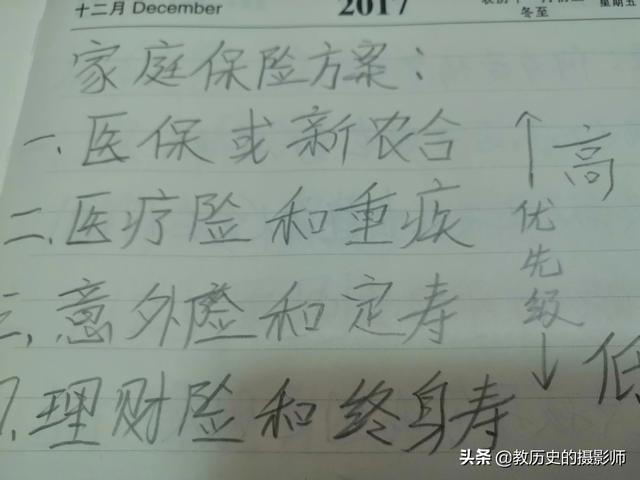 十二月 December
2017
冬至
星期五
家庭保险方案：
一、医保或新农合
二、医疗险和重疾
三、意外险和定寿
理财险和终身寿
↑
高
优先级
↓
低
头条 @教历史的摄影师